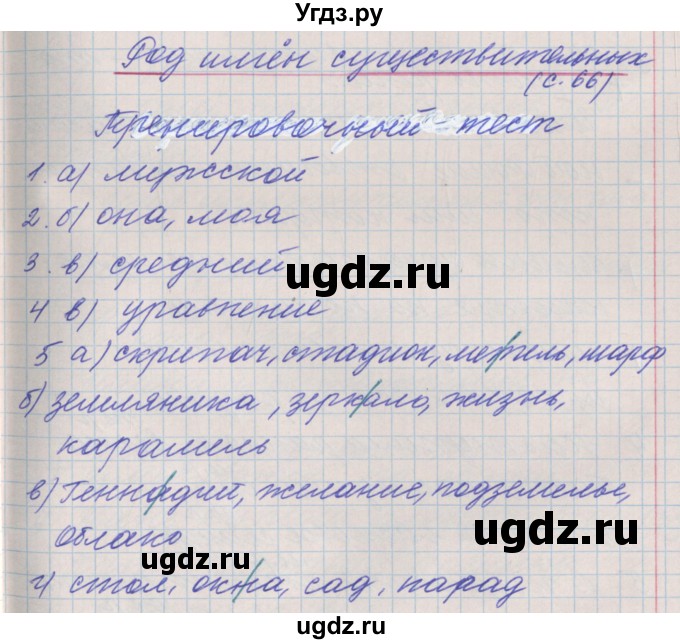 Угдз.ру
Род имён существительных
(с. 66)
Тренировочный тест
1. а) мужской
2. б) она, моя
3. в) средний
ugdz.ru
4 в) уравнение
5 а) скрипач, стадион, метель, шарф
б) земляника, зеркало, жизнь,
карамель
в) Геннадий, желание, подземелье,
ugdz.ru
облако
ugdz.ru
г) стол, окна, сад, парад
ugdz.ru